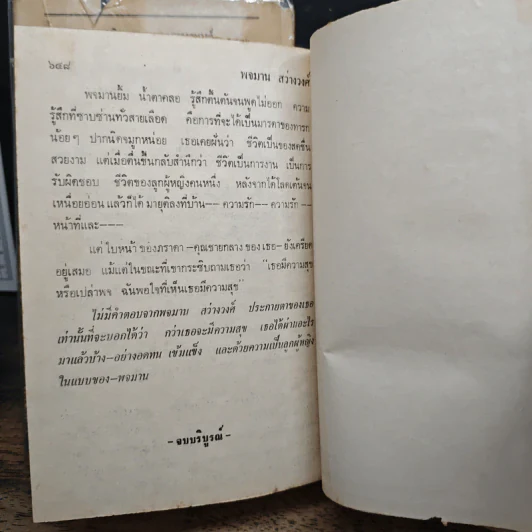 ๖๔๘
พจมาน สว่างวงศ์
พจมานยิ้ม น้ำตาคลอ รู้สึกตื้นตันจนพูดไม่ออก ความ
รู้สึกที่ซาบซ่านทั่วสายเลือด คือการที่จะได้เป็นมารดาของทารก
น้อยๆ ปากนิดจมูกหน่อย เธอเคยฝันว่า ชีวิตเป็นของสดชื่น
สวยงาม แต่เมื่อตื่นขึ้นกลับสำนึกว่า ชีวิตเป็นการงาน เป็นการ
รับผิดชอบ ชีวิตของลูกผู้หญิงคนหนึ่ง หลังจากได้โลดเต้นจน
เหนื่อยอ่อน แล้วก็ได้ มายุติลงที่บ้าน-- ความรัก-- ความรัก--
หน้าที่และ---
แต่ ใบหน้า ของภราดา -คุณชายกลาง ของ เธอ- ยังเครียด
อยู่เสมอ แม้แต่ในขณะที่เขากระซิบถามเธอว่า "เธอมีความสุข
หรือเปล่าพจ ฉันพอใจที่เห็นเธอมีความสุข"
ไม่มีคำตอบจากพจมาน สว่างวงศ์ ประกายตาของเธอ
เท่านั้นที่จะบอกได้ว่า กว่าเธอจะมีความสุข เธอได้ผ่านอะไร
มาแล้วบ้าง-อย่างอดทน เข้มแข็ง และด้วยความเป็นลูกผู้หญิง
ในแบบของ-พจมาน
- จบบริบูรณ์ -